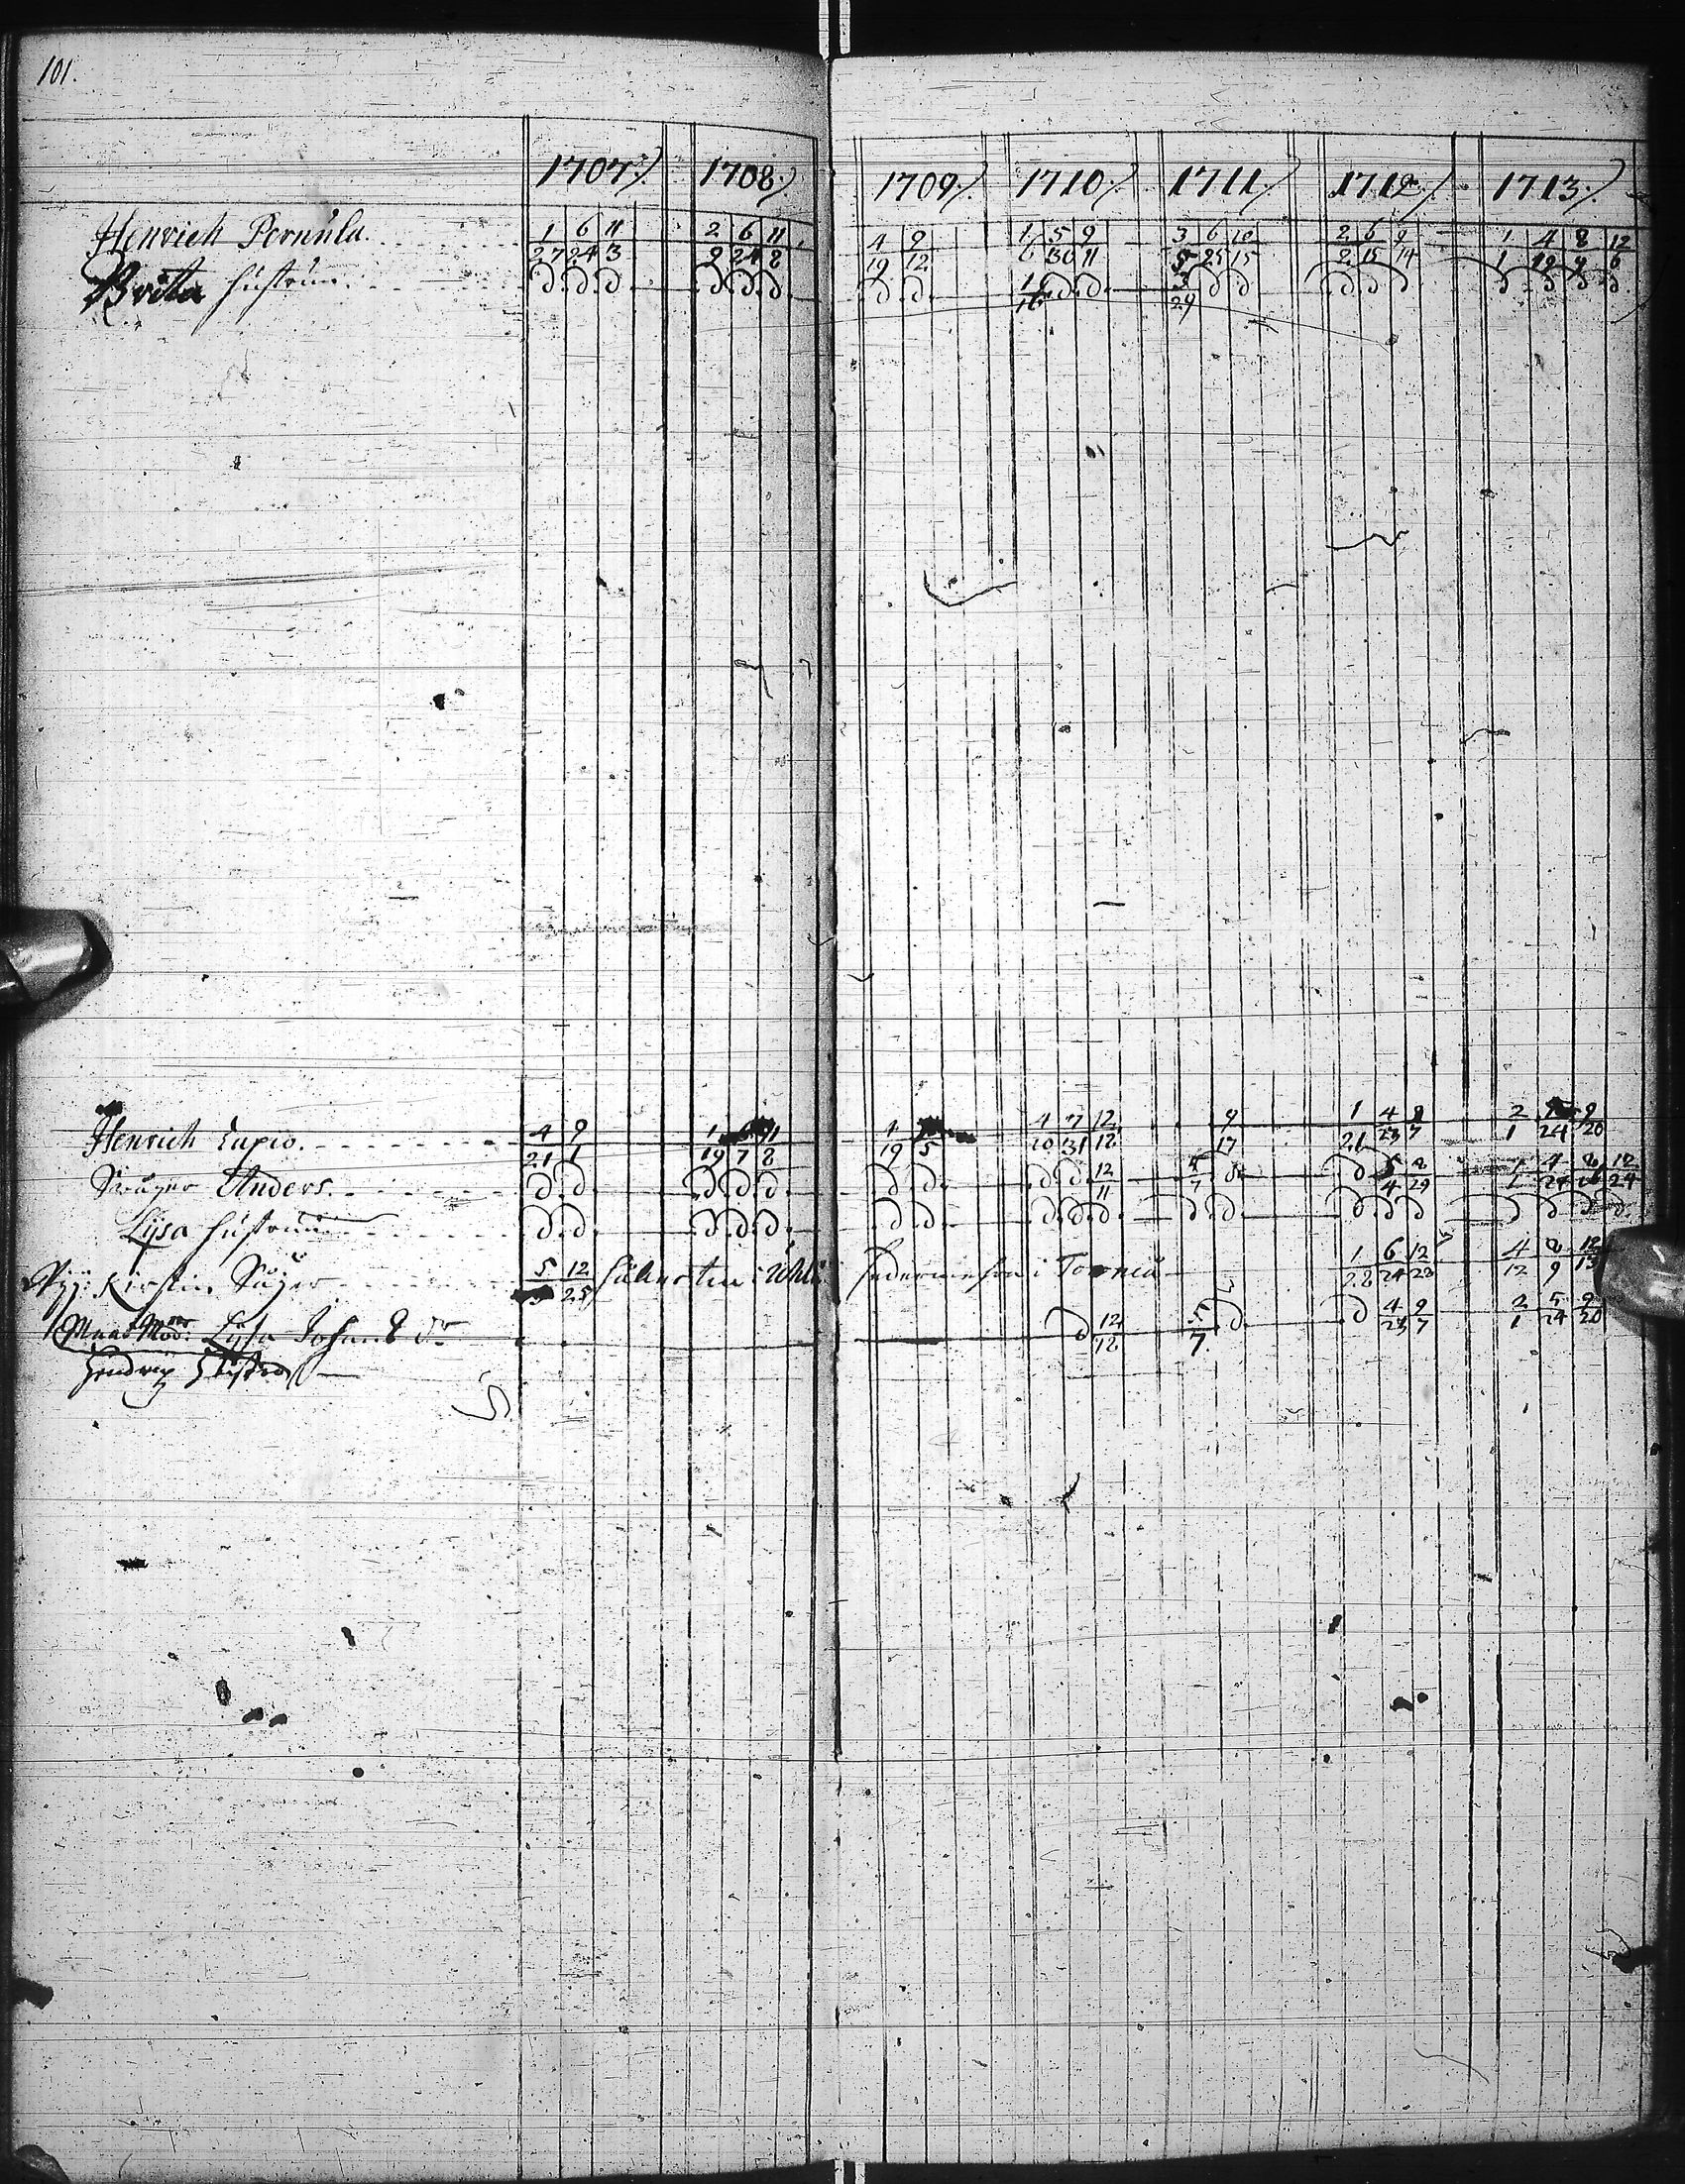 101.
1707 1708 1709 1710 1711 1712 1713
Henrich Pernula. 1/27 6/24 11/3 2/9 6/24 11/8 4/19 9/12 1/6 5/30 9/11 3/5 6/25 10/15 2/2 6/15 9/14 1/1 4/12 8/9 12/6
Brita hustru d. d. d. d. d. d. d. d. 1/16 d. d. 3/29 d d d d d d d d d
Henrich Lapio. 4/21 9/1 1/19 7 11/8 4/19 5 4/10 7/31 12/18 9/17 1/21 4/23 8/7 2/1 24 9/20
Swåger Anders. d. d. d. d. d. d. d. d. d. 12/11 4/7 d d 5/4 8/29 1/1 4/24 8 12/24
Lÿsa hustru d. d. d. d. d. d. d. d. d. d. d. d. d d d d d d d d
Pijg: Kirstin 5 12/25 i Uhlå i Torneå 1/28 6/24 12/28 4/12 8/9 12/13
Lysa Joh: dr d 12/18 5/7 d. d 4/23 9/7 2/1 5/24 9/20
Hendrix hustro